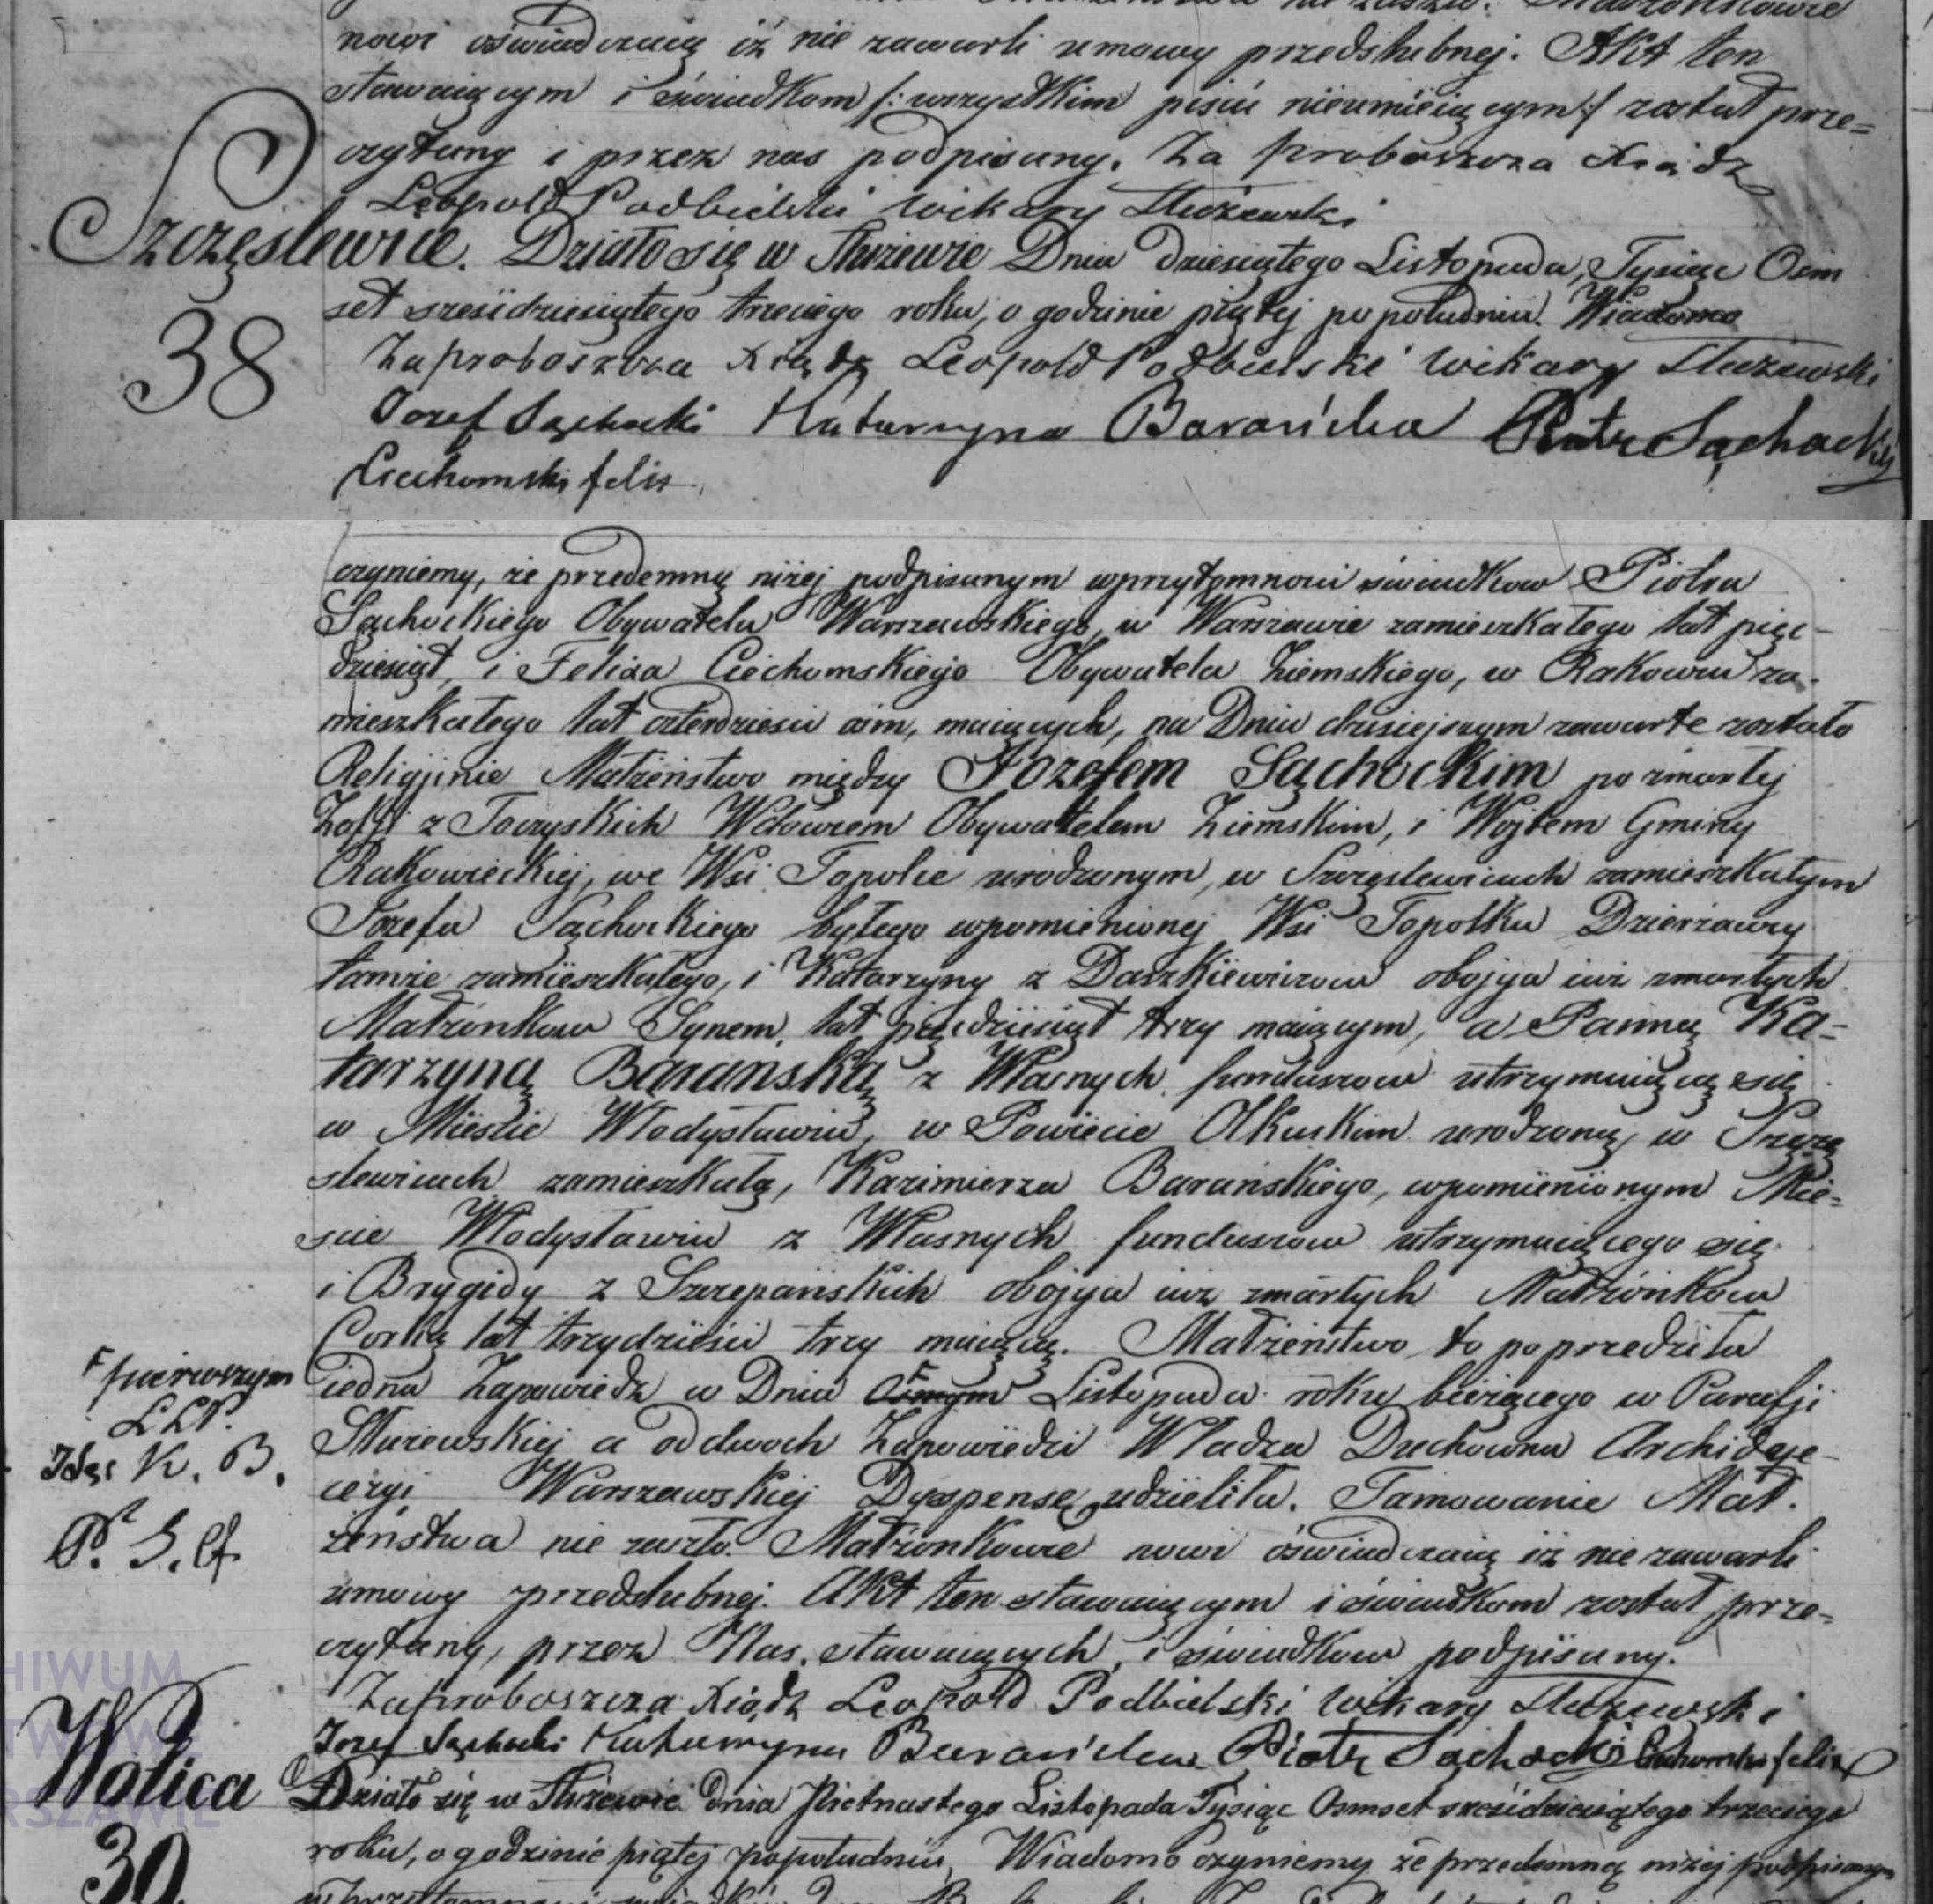 nowi oświadczaią iż nie zawarli umowy przedślubnej. Akt ten
stawaiącym i świadkom /: wszystkim pisać nieumieiącym :/ został prze=
czytany i przez nas podpisany. Za proboszcza Xiądz
Leopold Podbielski Wikary Służewski
Szczęslewice. Działo się w Służewie Dnia dziesiątego Listopada, Tysiąc Ośm
38
set sześćdziesiątego trzeciego roku, o godzinie piątej po południu. Wiadomo
Za proboszcza Xiądz Leopold Podbielski Wikary Służewski
Jozef Sąchocki Katarzyna Barańska Piotr Sąchocki
Ciechomski felix
czyniemy, że przedemną niżej podpisanym w przytomności świadkow Piotra
Sąchockiego Obywatela Warszawskiego, w Warszawie zamieszkałego lat pięć-
dziesiąt, i Felixa Ciechomskiego Obywatela Ziemskiego, w Rakowcu za-
mieszkałego lat czterdzieści ośm, maiących, na Dniu dzisiejszym zawarte zostało
Religijnie Małżeństwo między Józefem Sąchockim po zmarłej
Zofji z Toczyskich Wdowcem Obywatelem Ziemskim, i Wojtem Gminy
Rakowieckiej, we Wsi Topolce urodzonym, w Szczęslewicach zamieszkałym
Jozefa Sąchockiego byłego wpomienionej Wsi Topolku Dzierżawcy
tamże zamieszkałego, i Katarzyny z Daszkiewiczow obojga iuż zmarłych
Małżonkow Synem, lat pięcdziesiąt trzy maiącym, a Panną Ka-
tarzyną Barańską z Własnych funduszow utrzymuiącą się
w Mieście Włodysławiu, w Powiecie Olkuskim urodzoną, w Szczę
slewicach zamieszkałą, Kazimierza Barańskiego, wpomienionym Mie=
scie Włodysławiu z Własnych funduszow utrzymuiącego się
i Brygidy z Szczepańskich obojga iuż zmarłych Małżonkow
Corką lat trzydzieści trzy maiącą. Małżeństwo to poprzedziła
iedna Zapowiedz w Dniu Osmym Listopada roku bieżącego w Parafji
pierwszym
X L P.
Józ S. K. B.
P. S. Cf.
Służewskiej a od dwoch Zapowiedzi Władza Duchowna Archidye-
cezyi Warszawskiej Dyspensę udzieliła. Tamowanie Mał.
żeństwa nie zaszło. Małżonkowie nowi oświadczaią iż nie zawarli
umowy przedślubnej. Akt ten stawaiącym i świadkom został prze=
czytany, przez Nas, stawaiących, i świadkow podpisany.
Za proboszcza Xiądz Leopold Podbielski Wikary Służewski
Jozef Sąchocki Katarzyna Barańska Piotr Sąchocki Ciechomski felix
Wolica Działo się w Służewie dnia Pietnastego Listopada Tysiąc Osmset sześćdziesiątego trzeciego
39
roku, o godzinie piątej popołudniu, Wiadomo czyniemy że przedemną niżej podpisanym